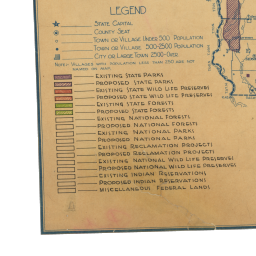 LEGEND
STATE CAPITAL
COUNTY SEAT
TOWN OR VILLAGE UNDER 500 POPULATION
TOWN OR VILLAGE 500-2500 POPULATION
CITY OR LARGE TOWN 2500-OVER
NOTE: VILLAGES WITH POPULATION LESS THAN 100 ARE NOT
SHOWN ON MAP.
EXISTING STATE PARKS
PROPOSED STATE PARKS
EXISTING STATE WILD LIFE PRESERVES
PROPOSED STATE WILD LIFE PRESERVES
EXISTING STATE FORESTS
PROPOSED STATE FORESTS
EXISTING NATIONAL FORESTS
PROPOSED NATIONAL FORESTS
EXISTING NATIONAL PARKS
PROPOSED NATIONAL PARKS
EXISTING RECLAMATION PROJECTS
PROPOSED RECLAMATION PROJECTS
EXISTING NATIONAL WILD LIFE PRESERVES
PROPOSED NATIONAL WILD LIFE PRESERVES
EXISTING INDIAN RESERVATIONS
PROPOSED INDIAN RESERVATIONS
MISCELLANEOUS FEDERAL LANDS